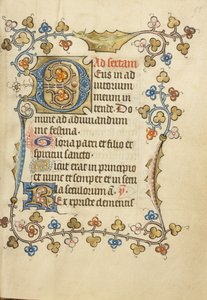 Ad sextam
Deus in ad
iutorium
meum in
tende Do
mine ad adiuuandum
me festina
Gloria patri et filio et
spiritui sancto
Sicut erat in principio
et nunc et semper et in secu
la seculorum a
Rex xpriste clemens